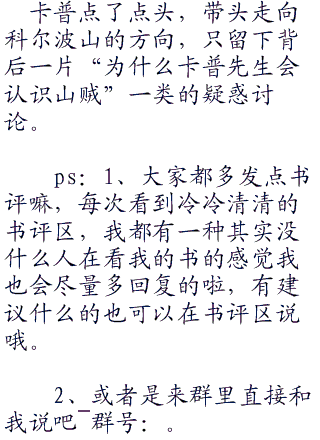 卡普点了点头，带头走向
科尔波山的方向，只留下背
后一片“为什么卡普先生会
认识山贼”一类的疑惑讨
论。
ps：1、大家都多发点书
评嘛，每次看到冷冷清清的
书评区，我都有一种其实没
什么人在看我的书的感觉我
也会尽量多回复的啦，有建
议什么的也可以在书评区说
哦。
2、或者是来群里直接和
我说吧¯群号：。